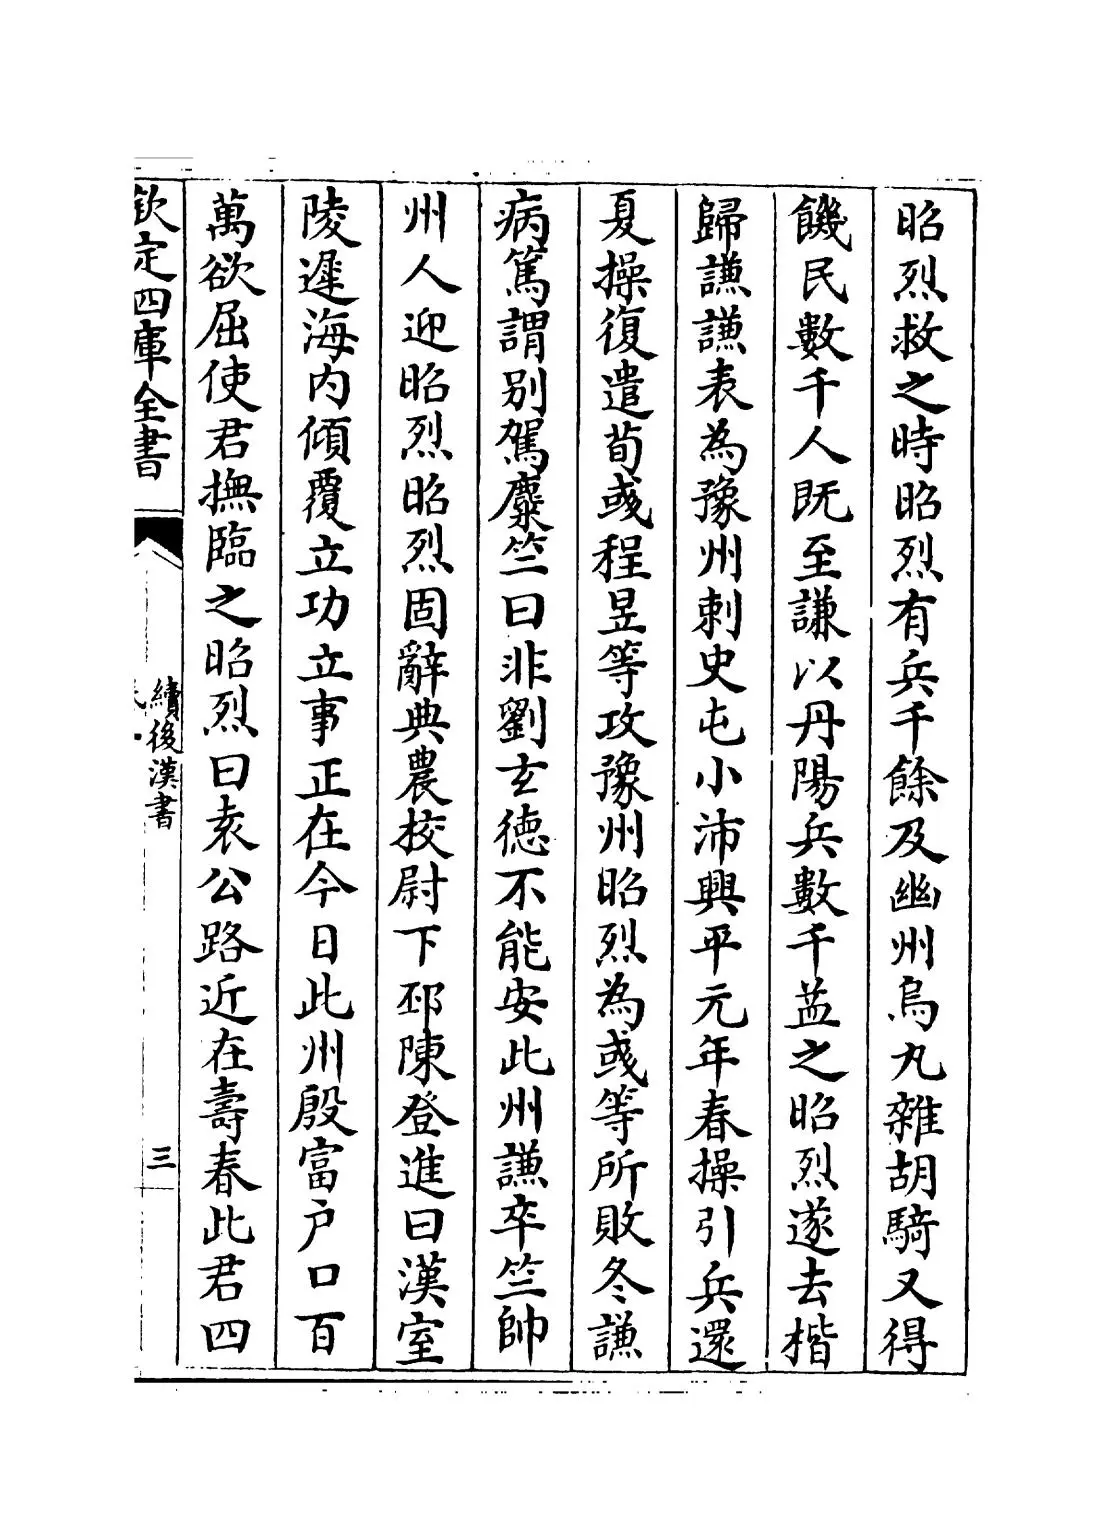 昭烈救之時昭烈有兵千餘及幽州烏丸雜胡騎又得
饑民數千人既至謙以丹陽兵數千益之昭烈遂去楷
歸謙謙表為豫州刺史屯小沛興平元年春操引兵還
夏操復遣荀彧程昱等攻豫州昭烈為彧等所敗冬謙
病篤謂别駕麋竺曰非劉玄徳不能安此州謙卒竺帥
州人迎昭烈昭烈固辭典農校尉下邳陳登進曰漢室
陵遲海内傾覆立功立事正在今日此州殷富户口百
萬欲屈使君撫臨之昭烈曰袁公路近在壽春此君四
欽定四庫全書
續後漢書
三